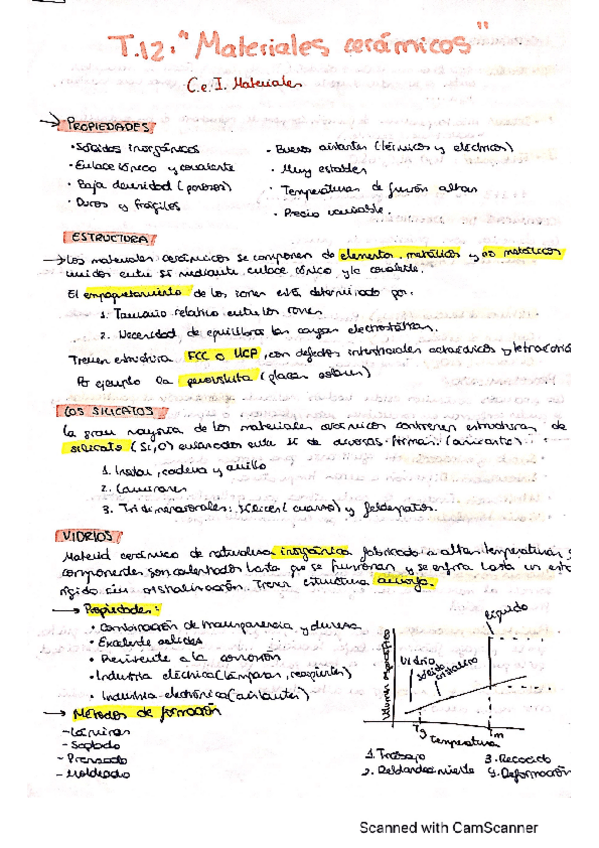 T.12. "Materiales cerámicos"
C.e.I. Materiales
→ PROPIEDADES
• Sólidos inorgánicos
• Enlace iónico y covalente
• Baja densidad (porosos)
• Duros y frágiles
• Buenos aislantes (térmicos y eléctricos)
• Muy estables
• Temperaturas de fusión altas
• Precio variable.
ESTRUCTURA
→ Los materiales cerámicos se componen de elementos metálicos y no metálicos
unidos entre sí mediante enlace iónico y/o covalente.
El empaquetamiento de los iones está determinado por:
1. Tamaño relativo entre los iones
2. Necesidad de equilibrar las cargas electrostáticas.
Tienen estructura FCC o HCP, con defectos intersticiales octaédricos y tetraédri
Por ejemplo la perovskita (placas solares)
LOS SILICATOS
La gran mayoría de los materiales cerámicos contienen estructuras de
silicato (Si, O) enlazados entre sí de diversas formas:
1. Islas, cadena y anillo
2. Laminares
3. Tridimensionales: sílices (cuarzo) y feldespatos.
VIDRIOS
Material cerámico de naturaleza inorgánica fabricado a altas temperaturas
componentes son calentados hasta que se fusionan y se enfría hasta un est
rígido sin cristalización. Tienen estructura amorfa.
→ Propiedades:
• Combinación de transparencia y dureza
• Excelente
• Resistente a la corrosión
• Industria eléctrica (lámparas, recipientes)
• Industria electrónica (aislantes)
→ Métodos de formación
- Láminas
- Soplado
- Prensado
- Moldeado
Volumen específico
Vidrio
sólido
cristalino
líquido
Tg
Tm
Temperatura
1. Trabajo
2. Reblandecimiento
3. Recocido
4. Deformación
Scanned with CamScanner